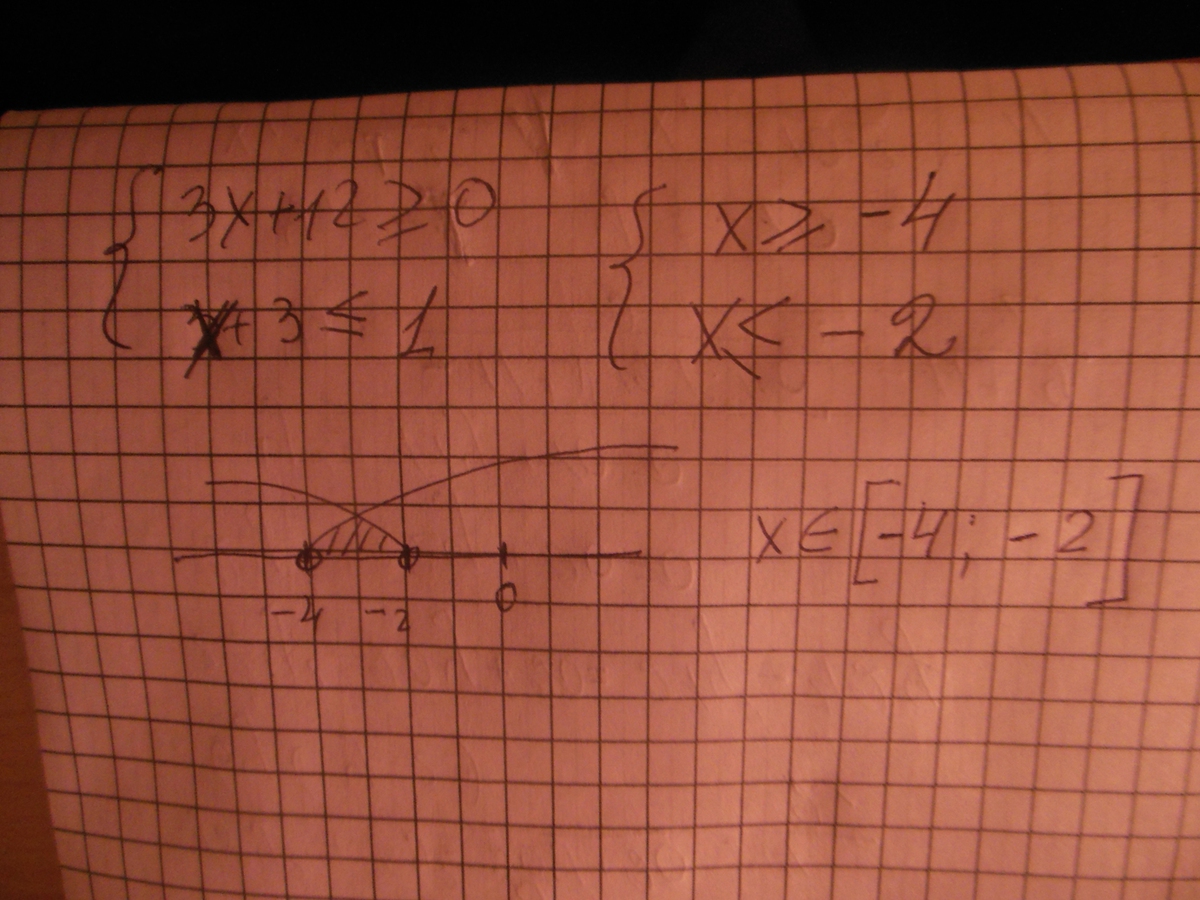 3x+12 ≥ 0
x+3 ≤ 1
x ≥ -4
x ≤ -2
-4 -2 0
x ∈ [-4; -2]